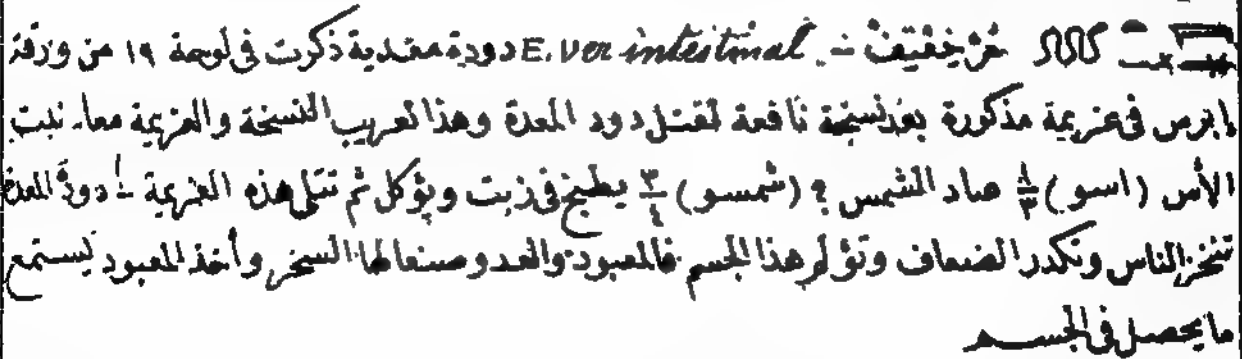 خزخفتيفت ـ E. ver intestinal دودة معدية ذكرت فى لوحة ١٩ من ورقة
ابرس فى عزيمة مذكورة بعد نسخة نافعة لقتل دود المعدة وهذا تعريب النسخة والعزيمة معا. نبت
الأس (اسو) صاد الشمس ؟ (شمسو) ٣/٤ يطبخ فى زيت ويؤكل ثم تتلى هذه العزيمة دودة المعدة
تنخز الناس وتكدر الضعاف وتؤلم هذا الجسم فالمعبود والعدو صنعا لها السخر وأخذ المعبود يستمع
ما يحصل فى الجسم